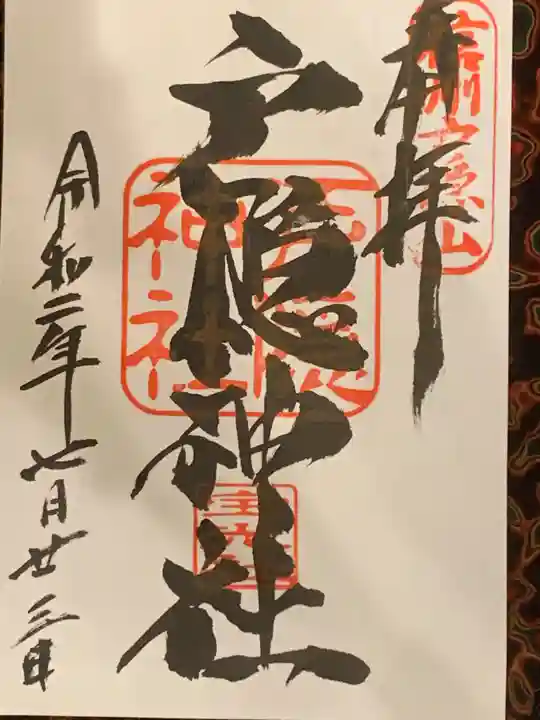 奉拝
信州戸隠山
戸隠神社
戸隠
神社
宝光社
令和二年七月廿三日